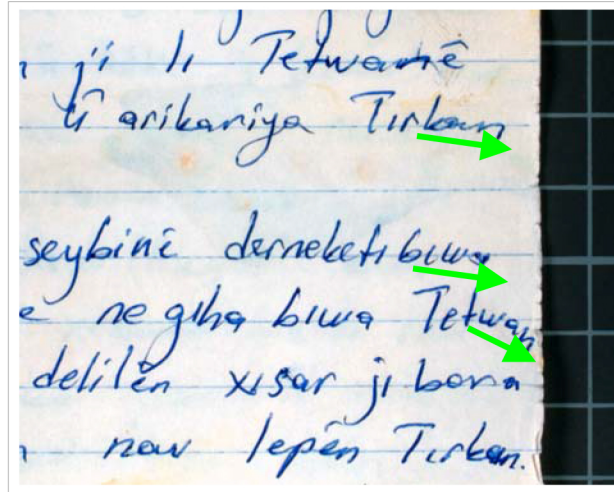 ji li Tetwanê
û arikariya Tırkan
seybinê derneketı bıwa
negıha bıwa Tetwan
delilên xısar jı bona
nav lepên Tırkan.